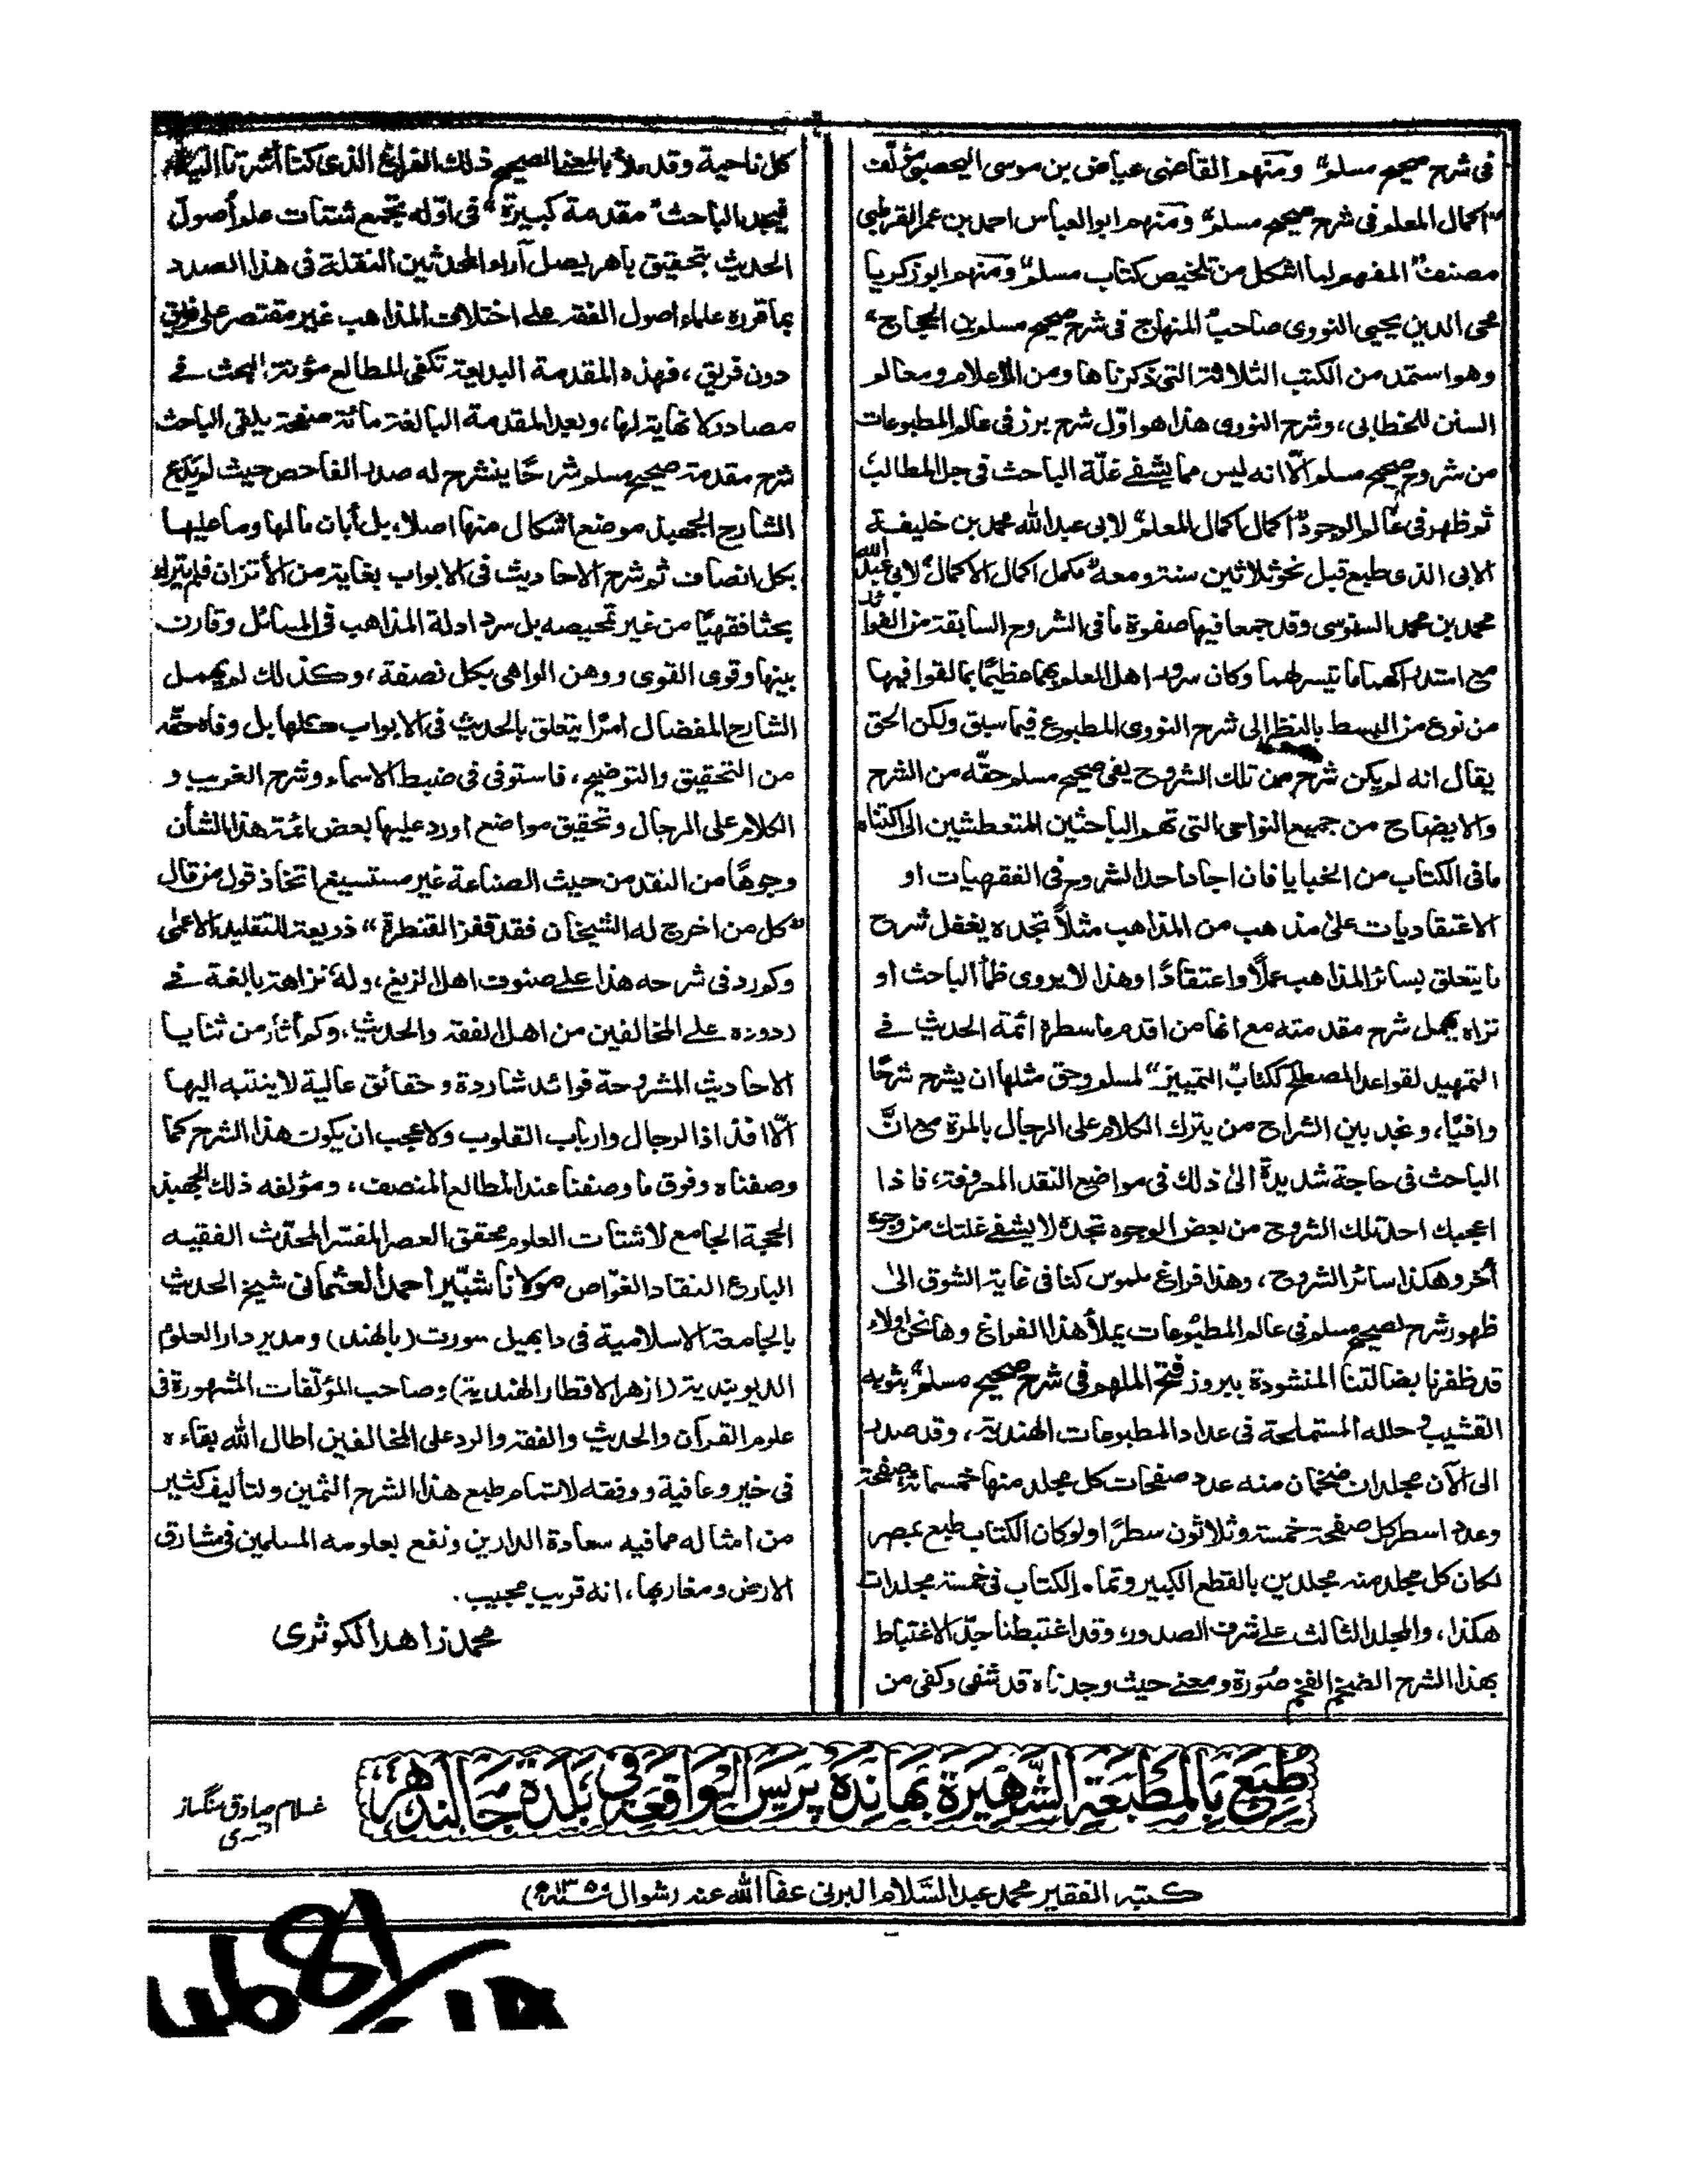 فى شرح صحيح مسلم" ومنهم القاضى عياض بن موسى اليحصبى مؤلّف
"اكمال المعلم فى شرح صحيح مسلم" ومنهم ابو العباس احمد بن عمر القرطبى
مصنف "المفهم لما اشكل من تلخيص كتاب مسلم" ومنهم ابو زكريا
محى الدين يحيى النووى صاحب "المنهاج فى شرح صحيح مسلم بن الحجاج"
وهو استمد من الكتب الثلاثة التى ذكرناها ومن الأعلام ومعالم
السنن للخطابى، وشرح النووى هذا هو اوّل شرح برز فى عالم المطبوعات
من شروح صحيح مسلم الّا انه ليس مما يشفى غلّة الباحث فى جل المطالب
ثم ظهر فى عالم الوجود "اكمال اكمال المعلم" لابى عبد الله محمد بن خليفة
الابى الذى طبع قبل نحو ثلاثين سنة ومعه "مكمل اكمال الاكمال" لابى عبد الله
محمد بن محمد السنوسى وقد جمعا فيها صفوة ما فى الشروح السابقة من الفوائد
مع استدراكهما ما تيسر لهما وكان سرور اهل العلم بهما عظيمًا بما لقوا فيها
من نوع من البسط بالنظر الى شرح النووى المطبوع فيما سبق ولكن الحق
يقال انه لم يكن شرح من تلك الشروح يفى صحيح مسلم حقّه من الشرح
والايضاح من جميع النواحى التى تهم الباحثين المتعطشين الى اكتناه
ما فى الكتاب من الخبايا فان اجاد احد الشروح فى الفقهيات او
الاعتقاديات على مذهب من المذاهب مثلاً تجده يغفل شرح
ما يتعلق بسائر المذاهب عملًا واعتقادًا وهذا لا يروى ظمأ الباحث او
تراه يهمل شرح مقدمته مع انها من اقدم ما سطره ائمة الحديث فى
التمهيد لقواعد المصطلح ككتاب "التمييز" لمسلم وحق مثلها ان يشرح شرحًا
وافيًا، ونجد بين الشراح من يترك الكلام على الرجال بالمرة مع انّ
الباحث فى حاجة شديدة الى ذلك فى مواضع النقد المعروفة، فاذا
اعجبك احد تلك الشروح من بعض الوجوه تجده لا يشفى غلتك من وجوه
أخر وهكذا سائر الشروح، وهذا فراغ ملموس كنا فى غاية الشوق الى
ظهور شرح لصحيح مسلم فى عالم المطبوعات يملأ هذا الفراغ وها نحن اولاء
قد ظفرنا بضالتنا المنشودة ببروز فتح الملهم فى شرح صحيح مسلم" بثوبه
القشيب و حلله المستملحة فى عداد المطبوعات الهندية، وقد صدر
الى الآن مجلدان ضخمان منه عدد صفحات كل مجلد منها خمسمائة صفحة
وعدد اسطر كل صفحة خمسة وثلاثون سطرًا ولو كان الكتاب طبع بمصر
لكان كل مجلد منه مجلدين بالقطع الكبير وتمام الكتاب فى خمسة مجلدات
هكذا، والمجلد الثالث على شرف الصدور، وقد اغتبطنا جدّ الاغتباط
بهذا الشرح الضخم الفخم صورة ومعنى حيث وجدناه قد شفى وكفى من
كل ناحية وقد ملأ بالمعنى الصحيح ذلك الفراغ الذى كنا أشرنا اليه
فيجد الباحث "مقدمة كبيرة" فى اوّله تجمع شتات علم أصول
الحديث بتحقيق باهر يصل آراء المحدثين النقلة فى هذا الصدد
بما قرره علماء اصول الفقه على اختلاف المذاهب غير مقتصر على فريق
دون فريق، فهذه المقدمة البديعة تكفى المطالع مؤنة البحث فى
مصادر لا نهاية لها، وبعد المقدمة البالغة مائة صفحة يلقى الباحث
شرح مقدمة صحيح مسلم شرحًا ينشرح له صدر الفاحص حيث لم يدع
الشارح الجهبذ موضع اشكال منها اصلا، بل أبان ما لها وما عليها
بكل انصاف ثم شرح الاحاديث فى الابواب بغاية من الأتزان فلم يترك
بحثا فقهيًا من غير تمحيصه بل سرد ادلة المذاهب فى المسائل وقارن
بينها وقوى القوى ووهن الواهى بكل نصفة، وكذلك لم يهمل
الشارح المفضال امرًا يتعلق بالحديث فى الابواب كلها بل وفاه حقّه
من التحقيق والتوضيح، فاستوفى فى ضبط الاسماء وشرح الغريب و
الكلام على الرجال وتحقيق مواضع اورد عليها بعض ائمة هذا الشأن
وجوهًا من النقد من حيث الصناعة غير مستسيغ اتخاذ قول من قال
"كل من اخرج له الشيخان فقد قفز القنطرة" ذريعة للتقليد الاعمى
وكم رد فى شرحه هذا على صنوف اهل الزيغ، وله نزاهة بالغة فى
ردوده على المخالفين من اهل الفقه والحديث، وكم أثار من ثنايا
الاحاديث المشروحة فوائد شاردة وحقائق عالية لا ينتبه اليها
الّا افذاذ الرجال وارباب القلوب ولا عجب ان يكون هذا الشرح كما
وصفناه وفوق ما وصفنا عند المطالع المنصف، ومؤلفه ذلك الجهبذ
الحجة الجامع لاشتات العلوم محقق العصر المفسّر المحدّث الفقيه
البارع النقاد الغوّاص مولانا شبّير احمد العثمانى شيخ الحديث
بالجامعة الاسلامية فى دابهيل سورت (بالهند) ومدير دار العلوم
الديوبندية (ازهر الاقطار الهندية) وصاحب المؤلّفات المشهورة فى
علوم القرآن والحديث والفقه والرد على المخالفين أطال الله بقاءه
فى خير وعافية ووفقه لاتمام طبع هذا الشرح الثمين ولتأليف كثير
من امثاله مما فيه سعادة الدارين ونفع بعلومه المسلمين فى مشارق
الارض ومغاربها، انه قريب مجيب.
محمد زاهد الكوثرى
طُبِعَ بِالْمَطْبَعَةِ الشَّهِيْرَةِ بَهَانِدَه پريس الْوَاقِعَةِ فِى بَلْدَة جَالندهر
غلام صادق سنگساز
كتبه الفقير محمد عبد السّلام البرنى عفا الله عنه (شوال ١٣٥٠ﻫ)